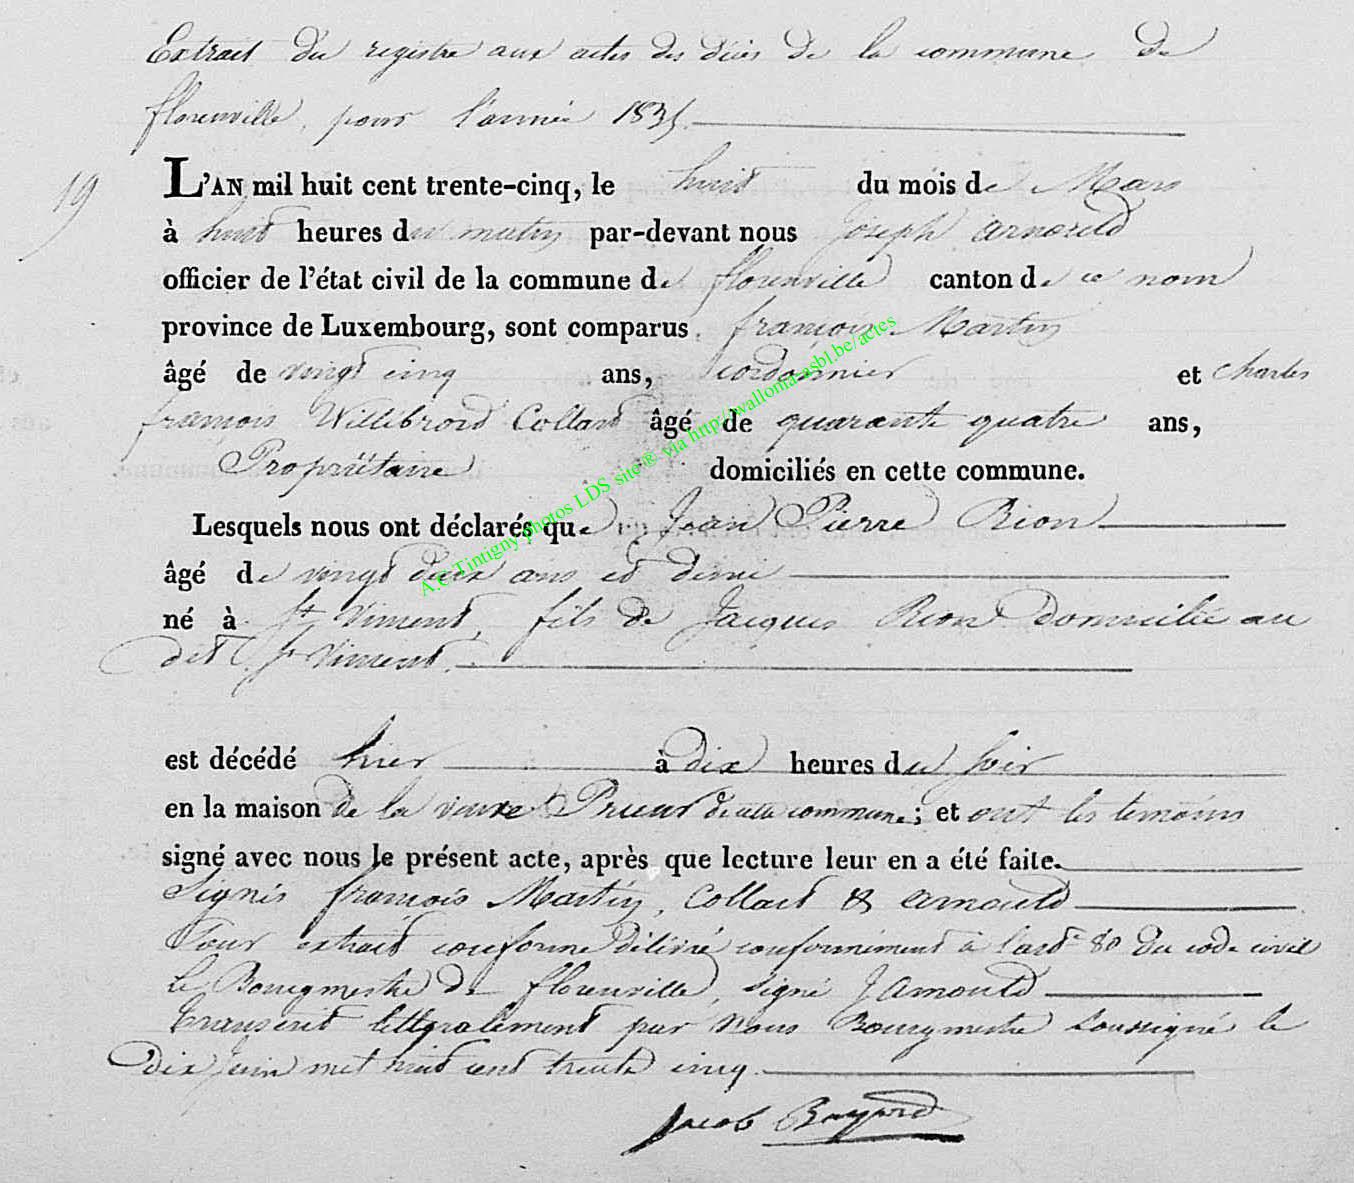 Extrait du registre aux actes des décès de la commune de
florenville, pour l'année 1835.
19
L'AN mil huit cent trente-cinq, le huit du mois de Mars
à huit heures du matin par-devant nous Joseph arnould
officier de l'état civil de la commune de florenville canton de ce nom
province de Luxembourg, sont comparus françois Martin
âgé de vingt cinq ans, cordonnier et charles
françois Willibrord Collard âgé de quarante quatre ans,
Propriétaire domiciliés en cette commune.
Lesquels nous ont déclarés que Jean Pierre Rion
âgé de vingt deux ans et demi
né à St Vincent, fils de Jacques Rion domicilié au
dit St Vincent.
est décédé hier à dix heures du soir
en la maison de la veuve Prieur de cette commune; et ont les temoins
signé avec nous le présent acte, après que lecture leur en a été faite.
Signés françois Martin, Collard & arnould
Pour extrait conforme délivré conformément à l'art 80 du code civil
Le Bourgmestre de florenville, signé J arnould
Transcrit littéralement par nous Bourgmestre soussigné le
dix juin mil huit cent trente cinq.
Jacob Bayard
A.C Tintigny photos LDS site® via http://wallonia-asbl.be/actes